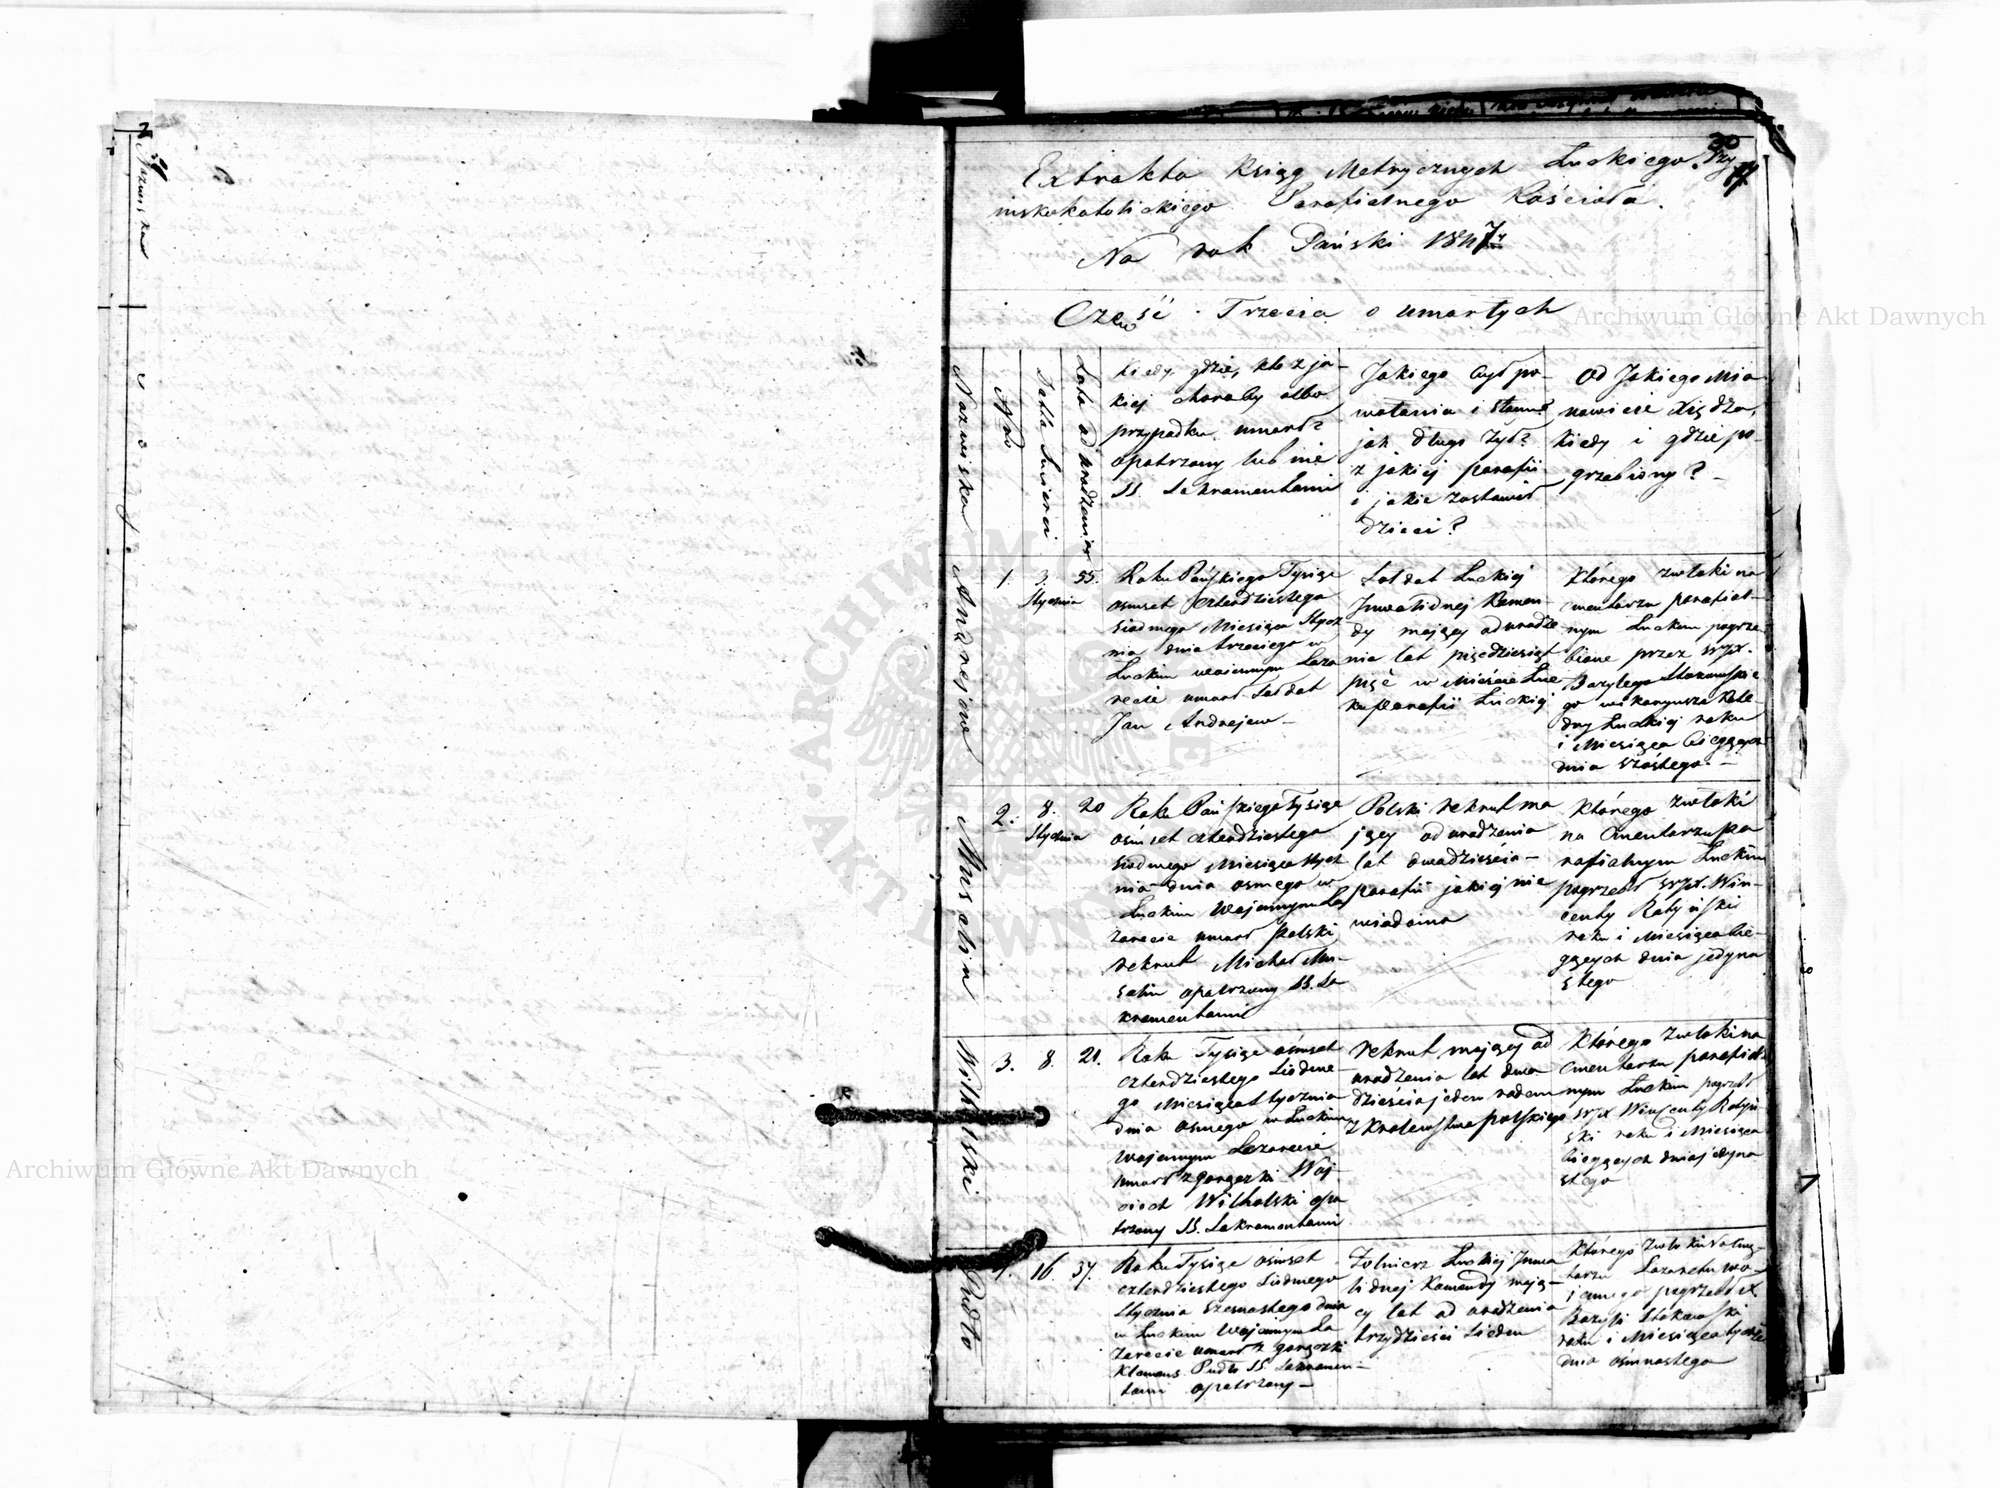 Extrakta Ksiąg Metrycznych Łuckiego Rzy-
mskokatolickiego Parafialnego Kościoła.
Na rok Pański 1847
Część Trzecia o umarłych
Nazwiska
Nr
Data Śmierci
Lata od urodzenia
Kiedy, gdzie, kto z ja-
kiej choroby albo
przypadku umarł?
opatrzony lub nie
SS. Sakramentami
Jakiego był po-
wołania i stanu?
jak długo żył?
z jakiej parafii
i jakie zostawił
dzieci?
Od Jakiego Mia
nowicie Xiędza,
kiedy i gdzie po-
grzebiony?
Andrejew
1.
3.
Stycznia
55.
Roku Pańskiego Tysiąc
osmset czterdziestego
siodmego Miesiąca Stycz
nia dnia trzeciego w
Łuckim wojennym Laza
recie umarł Soldat
Jan Andrejew
Soldat Łuckiej
Inwalidnej Komen-
dy mający od urodze
nia lat pięćdziesiąt
pięć w Mieście Łuc
ku Parafii Łuckiej
Którego zwłoki na
mentarzu parafial-
nym Łuckim pogrze-
bione przez WJX.
Bazylego
go wikaryusza Kate
dry Łuckiej roku
i Miesiąca bieżącego
dnia szóstego.
Musalin
2.
8.
Stycznia
20
Roku Pańskiego Tysiąc
ośmset czterdziestego
siodmego Miesiąca Stycz
nia dnia osmego w
Łuckim Wojennym La
zarecie umarł polski
rekrut Michał Mu-
salin opatrzony SS. Sa
kramentami
Polski rekrut ma
jący od urodzenia
lat dwadzieścia
parafii jakiej nie
wiadoma
Którego zwłoki
na Cmentarzu pa
rafialnym Łuckim
pogrzebł WJX. Win-
centy
roku i Miesiąca bie-
żących dnia jedyna
stego
Wilholski
3.
8.
21.
Roku Tysiąc ośmset
czterdziestego Siodme-
go Miesiąca Stycznia
dnia osmego w Łuckim
Wojennym Lazarecie
umarł z gorączki Woj-
ciech Wilholski opa
trzony SS. Sakramentami
rekrut mający od
urodzenia lat dwa
dzieścia jeden rodem
z Krolewstwa polskiego
Którego zwłoki na
Cmentarzu parafial
nym Łuckim pogrzebł
WJX Wincenty
ski roku i Miesiąca
bieżących dnia jedyna
stego
Pudło
4.
16.
37.
Roku Tysiąc ośmset
czterdziestego Siodmego
Stycznia szesnastego dnia
w Łuckim Wojennym La
zarecie umarł z gorączki
Klemens Pudło SS. Sakramen-
tami opatrzony
Żołnierz Łuckiej Inwa
lidnej Komendy mają-
cy lat od urodzenia
trzydzieści siedm
Którego zwłoki na
tarzu Lazaretu wo-
jennego pogrzebł X
Bazyli
roku i Miesiąca
dnia ośmnastego
Archiwum Główne Akt Dawnych
Archiwum Główne Akt Dawnych